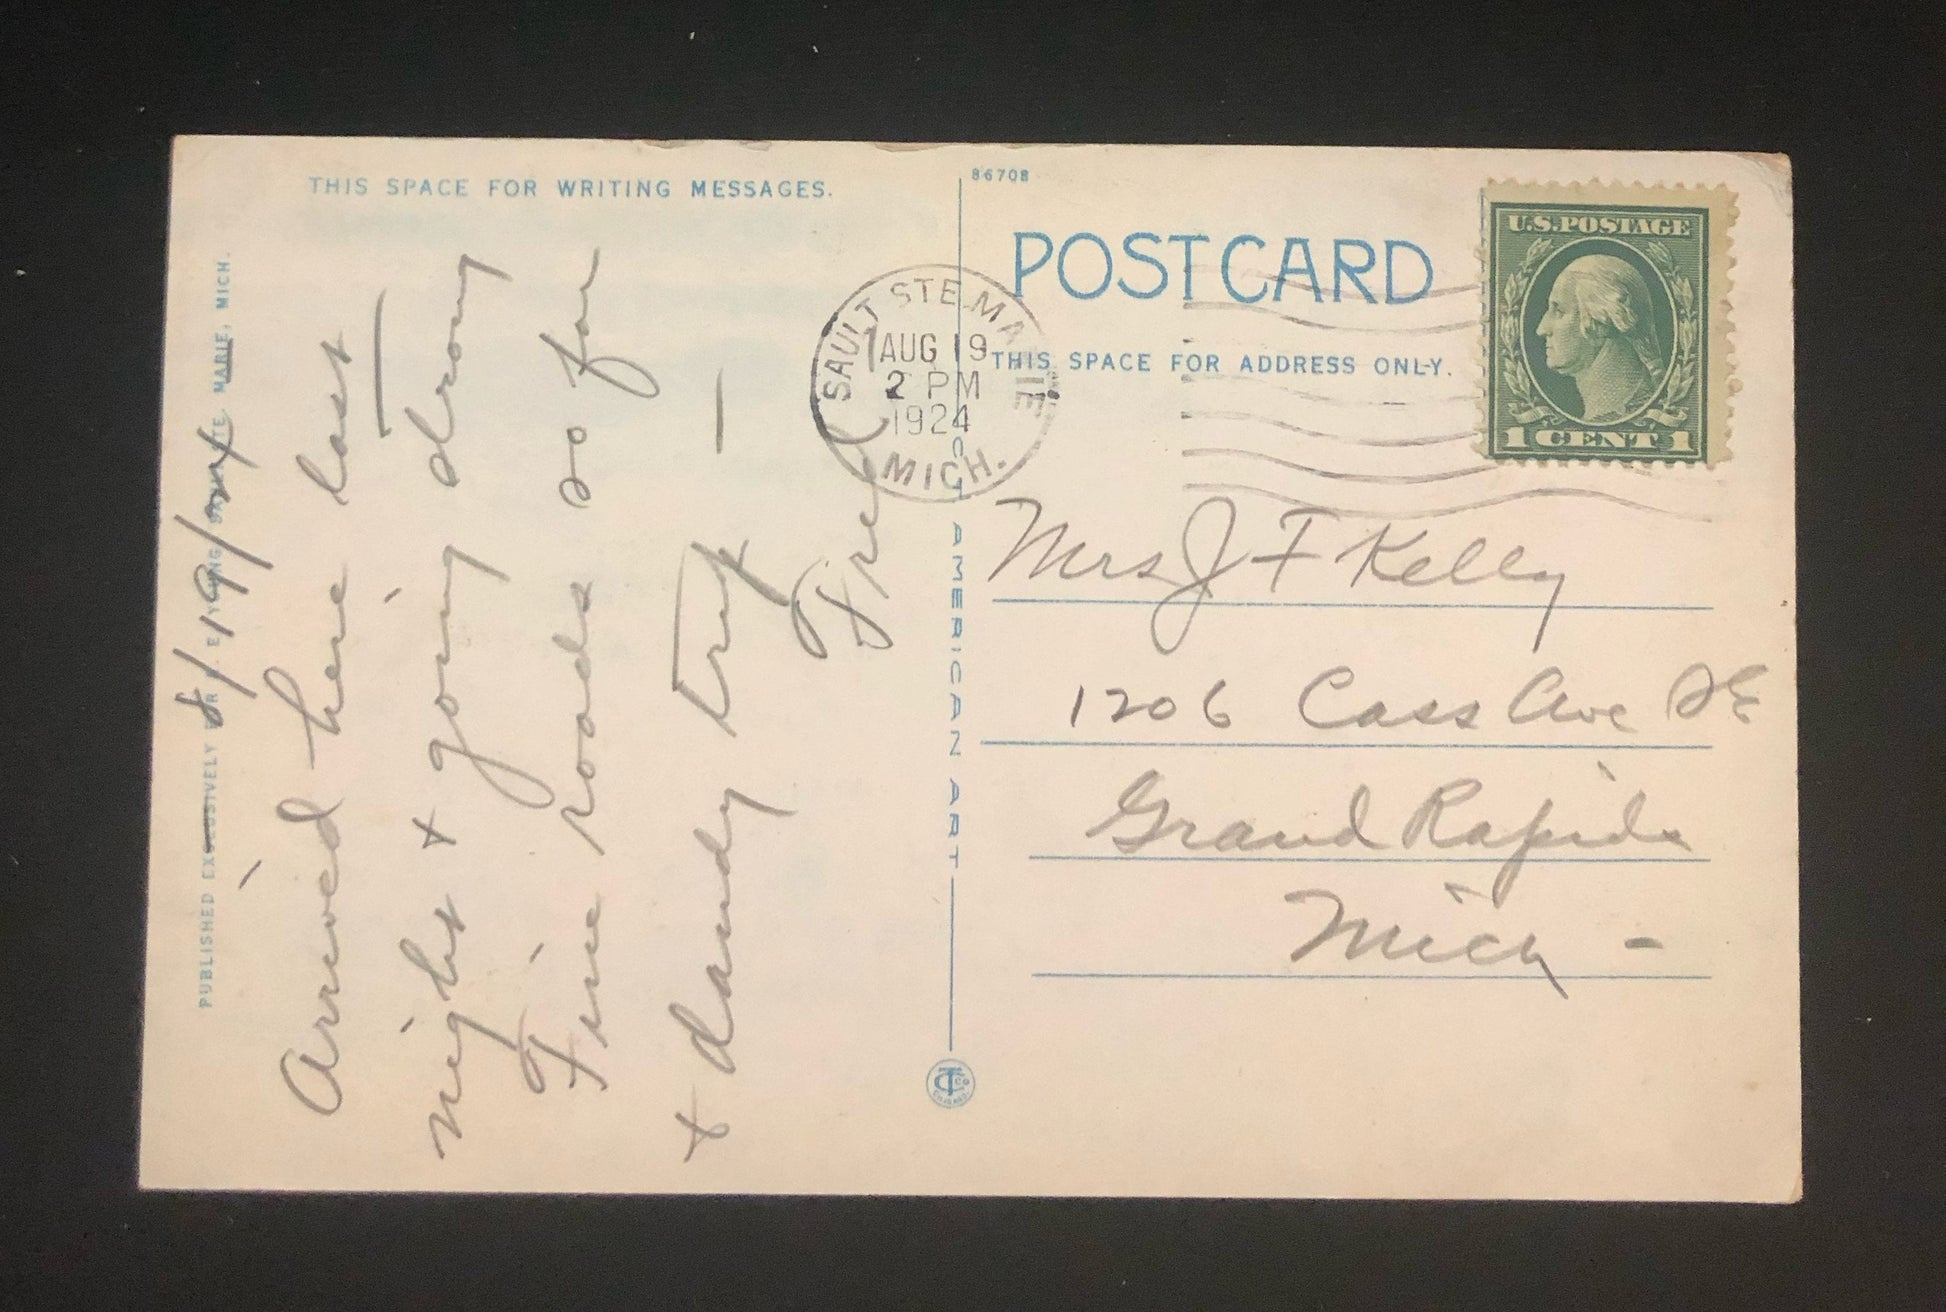 THIS SPACE FOR WRITING MESSAGES.
8/19/24
Arrived here last
night & going strong
Fine roads so far
& dandy trip —
Fred
PUBLISHED EXCLUSIVELY FOR E. YOUNG, SAULT STE. MARIE, MICH.
86708
POST CARD
THIS SPACE FOR ADDRESS ONLY.
U.S. POSTAGE
1 CENT 1
SAULT STE. MARIE
AUG 19
2 PM
1924
MICH.
C.T. AMERICAN ART
Mrs J F Kelly
1206 Cass Ave SE
Grand Rapids
Mich -
CT CO
CHICAGO